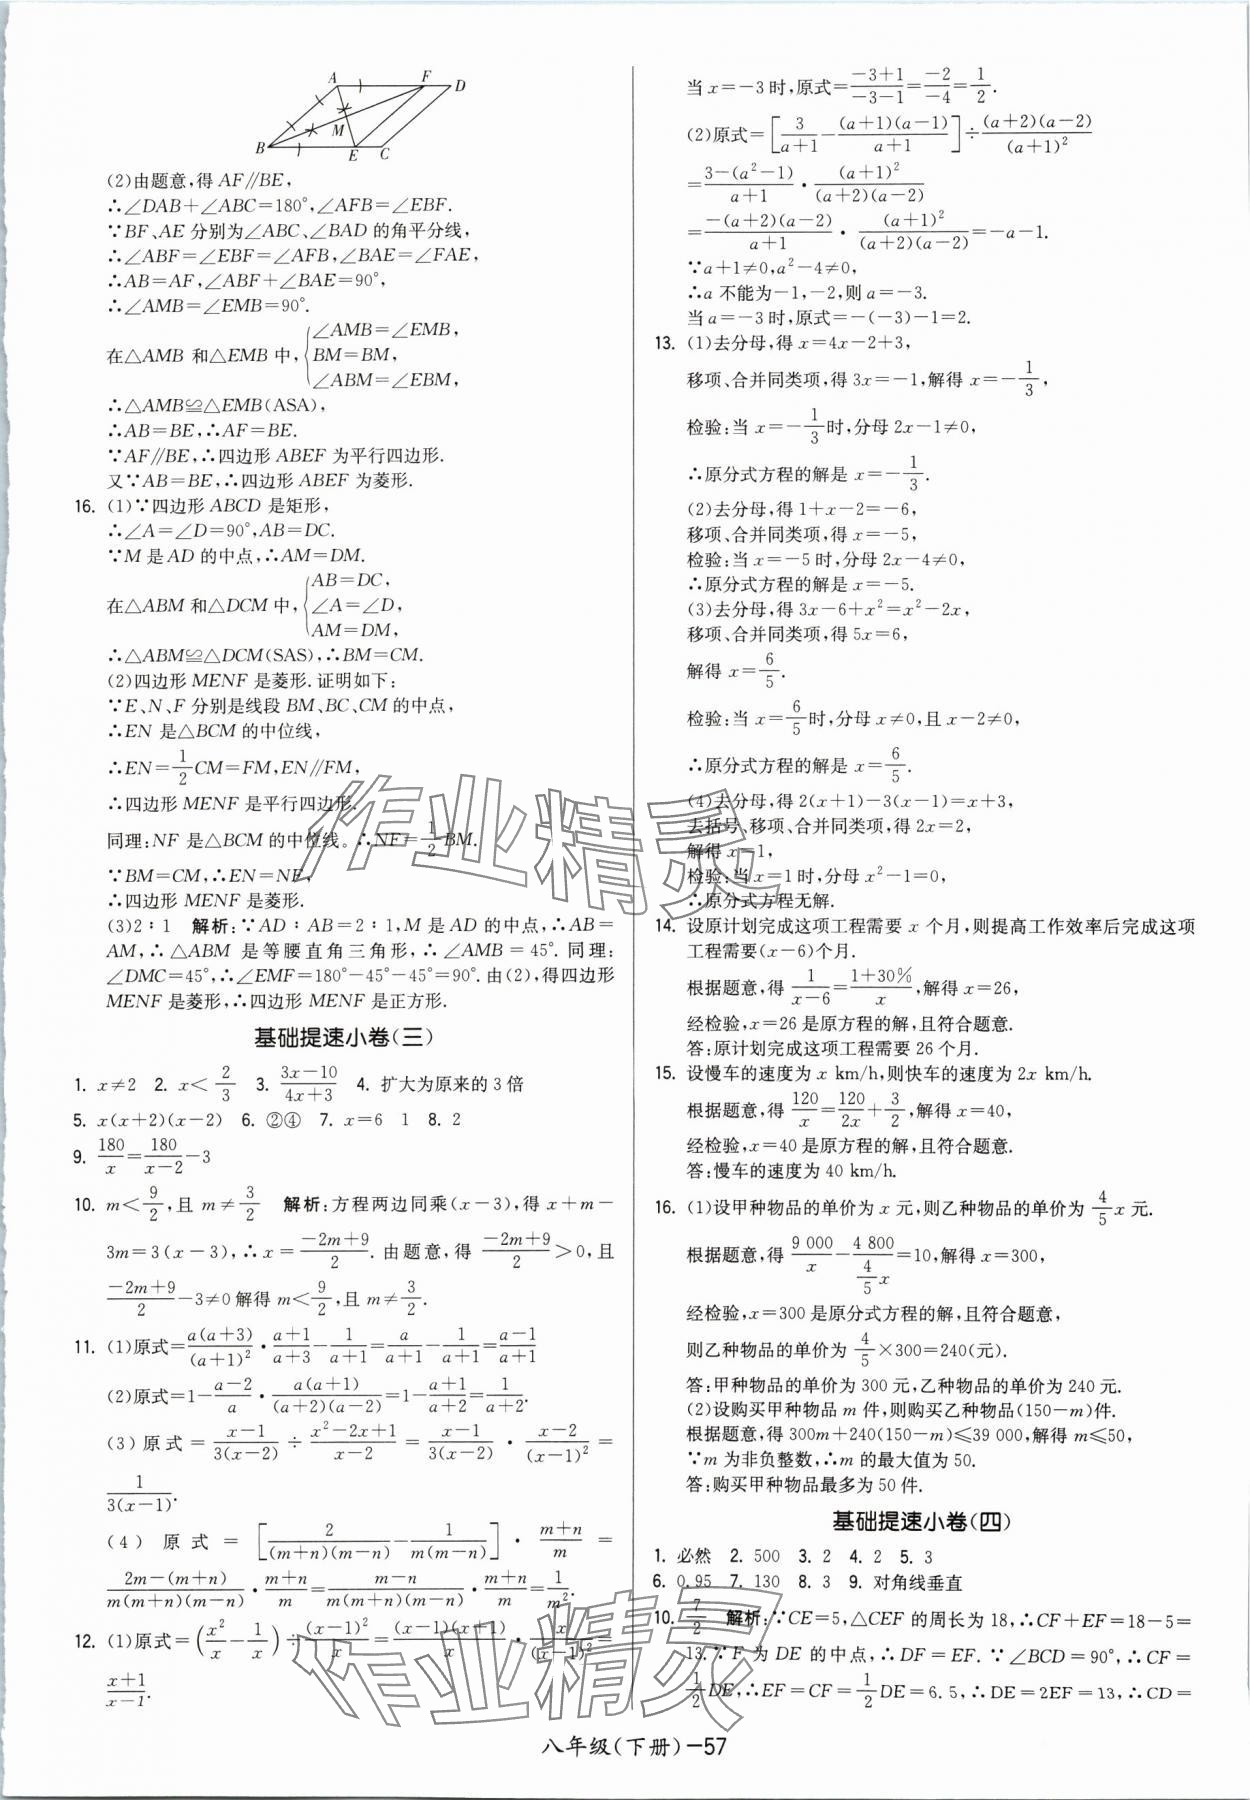 A F D
M
B E C
(2)由题意,得 AF∥BE,
∴∠DAB+∠ABC=180°,∠AFB=∠EBF.
∵BF、AE 分别为∠ABC、∠BAD 的角平分线,
∴∠ABF=∠EBF=∠AFB,∠BAE=∠FAE,
∴AB=AF,∠ABF+∠BAE=90°,
∴∠AMB=∠EMB=90°.
在△AMB 和△EMB 中,{∠AMB=∠EMB,
BM=BM,
∠ABM=∠EBM,
∴△AMB≌△EMB(ASA),
∴AB=BE,∴AF=BE.
∵AF∥BE,∴四边形 ABEF 为平行四边形.
又∵AB=BE,∴四边形 ABEF 为菱形.
16. (1)∵四边形 ABCD 是矩形,
∴∠A=∠D=90°,AB=DC.
∵M 是 AD 的中点,∴AM=DM.
在△ABM 和△DCM 中,{AB=DC,
∠A=∠D,
AM=DM,
∴△ABM≌△DCM(SAS),∴BM=CM.
(2)四边形 MENF 是菱形.证明如下:
∵E、N、F 分别是线段 BM、BC、CM 的中点,
∴EN 是△BCM 的中位线,
∴EN=1/2CM=FM,EN∥FM,
∴四边形 MENF 是平行四边形.
同理:NF 是△BCM 的中位线。∴NF=1/2BM.
∵BM=CM,∴EN=NF,
∴四边形 MENF 是菱形.
(3)2∶1 解析:∵AD∶AB=2∶1,M 是 AD 的中点,∴AB=
AM,∴△ABM 是等腰直角三角形,∴∠AMB=45°.同理:
∠DMC=45°,∴∠EMF=180°-45°-45°=90°.由(2),得四边形
MENF 是菱形,∴四边形 MENF 是正方形.
基础提速小卷(三)
1. x≠2 2. x<2/3 3. (3x-10)/(4x+3) 4. 扩大为原来的 3 倍
5. x(x+2)(x-2) 6. ②④ 7. x=6 1 8. 2
9. 180/x=180/(x-2)-3
10. m<9/2,且 m≠3/2 解析:方程两边同乘(x-3),得 x+m-
3m=3(x-3),∴x=(-2m+9)/2.由题意,得 (-2m+9)/2>0,且
(-2m+9)/2-3≠0解得 m<9/2,且 m≠3/2.
11. (1)原式=a(a+3)/(a+1)²·(a+1)/(a+3)-1/(a+1)=a/(a+1)-1/(a+1)=(a-1)/(a+1).
(2)原式=1-(a-2)/a·a(a+1)/(a+2)(a-2)=1-(a+1)/(a+2)=1/(a+2).
(3)原式=(x-1)/3(x-2)÷(x²-2x+1)/(x-2)=(x-1)/3(x-2)·(x-2)/(x-1)²=
1/3(x-1).
(4)原式=[2/(m+n)(m-n)-1/m(m-n)]·(m+n)/m=
(2m-(m+n))/m(m+n)(m-n)·(m+n)/m=(m-n)/m(m+n)(m-n)·(m+n)/m=1/m².
12. (1)原式=(x²/x-1/x)÷(x-1)²/x=(x-1)(x+1)/x·x/(x-1)²=
(x+1)/(x-1).
当 x=-3 时,原式=(-3+1)/(-3-1)=-2/-4=1/2.
(2)原式=[3/(a+1)-(a+1)(a-1)/(a+1)]÷(a+2)(a-2)/(a+1)²
=(3-(a²-1))/(a+1)·(a+1)²/(a+2)(a-2)
=-(a+2)(a-2)/(a+1)·(a+1)²/(a+2)(a-2)=-a-1.
∵a+1≠0,a²-4≠0,
∴a 不能为-1,-2,则 a=-3.
当 a=-3 时,原式=-(-3)-1=2.
13. (1)去分母,得 x=4x-2+3,
移项、合并同类项,得 3x=-1,解得 x=-1/3,
检验:当 x=-1/3时,分母 2x-1≠0,
∴原分式方程的解是 x=-1/3.
(2)去分母,得 1+x-2=-6,
移项、合并同类项,得 x=-5,
检验:当 x=-5 时,分母 2x-4≠0,
∴原分式方程的解是 x=-5.
(3)去分母,得 3x-6+x²=x²-2x,
移项、合并同类项,得 5x=6,
解得 x=6/5.
检验:当 x=6/5时,分母 x≠0,且 x-2≠0,
∴原分式方程的解是 x=6/5.
(4)去分母,得 2(x+1)-3(x-1)=x+3,
去括号、移项、合并同类项,得 2x=2,
解得 x=1,
检验:当 x=1 时,分母 x²-1=0,
∴原分式方程无解.
14. 设原计划完成这项工程需要 x 个月,则提高工作效率后完成这项
工程需要(x-6)个月.
根据题意,得 1/(x-6)=(1+30%)/x,解得 x=26,
经检验,x=26 是原方程的解,且符合题意.
答:原计划完成这项工程需要 26 个月.
15. 设慢车的速度为 x km/h,则快车的速度为 2x km/h.
根据题意,得 120/x=120/2x+3/2,解得 x=40,
经检验,x=40 是原方程的解,且符合题意.
答:慢车的速度为 40 km/h.
16. (1)设甲种物品的单价为 x 元,则乙种物品的单价为 4/5x 元.
根据题意,得 9 000/x-4 800/(4/5x)=10,解得 x=300,
经检验,x=300 是原分式方程的解,且符合题意,
则乙种物品的单价为 4/5×300=240(元).
答:甲种物品的单价为 300 元,乙种物品的单价为 240 元.
(2)设购买甲种物品 m 件,则购买乙种物品(150-m)件.
根据题意,得 300m+240(150-m)≤39 000,解得 m≤50,
∵m 为非负整数,∴m 的最大值为 50.
答:购买甲种物品最多为 50 件.
基础提速小卷(四)
1. 必然 2. 500 3. 2 4. 2 5. 3
6. 0.95 7. 130 8. 3 9. 对角线垂直
10. 7/2 解析:∵CE=5,△CEF 的周长为 18,∴CF+EF=18-5=
13.∵F 为 DE 的中点,∴DF=EF.∵∠BCD=90°,∴CF=
1/2DE,∴EF=CF=1/2DE=6.5,∴DE=2EF=13,∴CD=
作业精灵
作业精灵
八年级(下册)-57